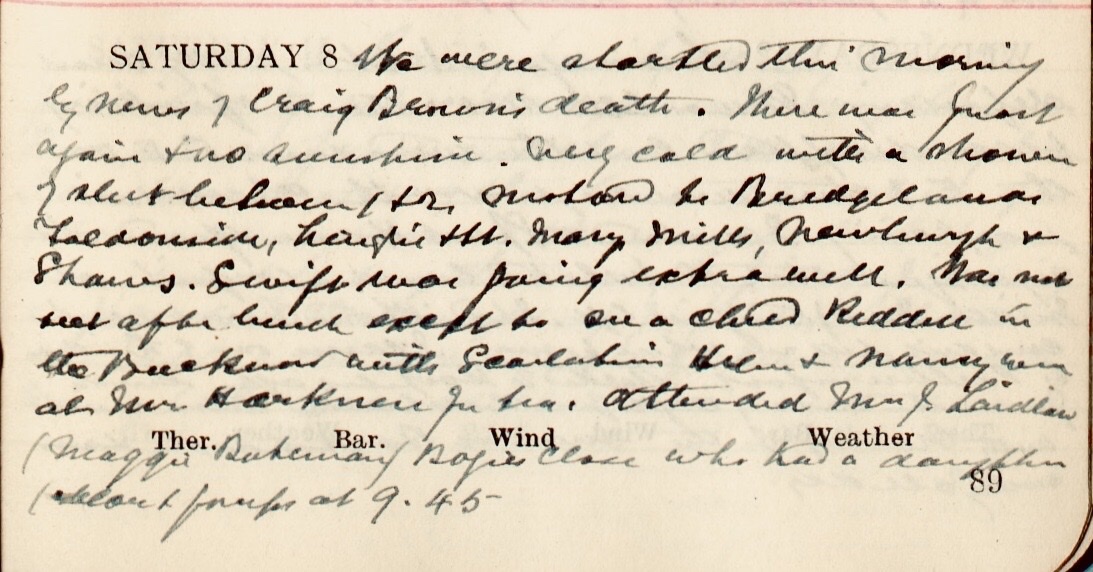 SATURDAY 8 We were startled this morning
by news of Craig Brown's death. There was frost
again & no sunshine. Very cold with a shower
of sleet between 1 & 2. Motored to Bridgelands
Faldonside, Lindean & St. Mary's Mills, Newburgh &
Shaws. Swift was going extra well. Was not
out after lunch except to see a child Riddell in
the Buckwood with Scarlatina Helen & Nancy were
at Mrs Harkness for tea. Attended Mrs J. Laidlaw
Ther. Bar. Wind Weather
(Maggie Bateman) Bogies Close who had a daughter
(short forceps at 9.45
89